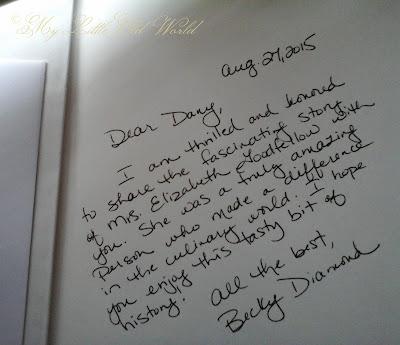 ©My Little Old World
Aug. 27, 2015
Dear Dany,
I am thrilled and honored
to share the fascinating story
of Mrs. Elizabeth Goodfellow with
you. She was a truly amazing
person who made a difference
in the culinary world. I hope
you enjoy this tasty bit of
history.
All the best,
Becky Diamond